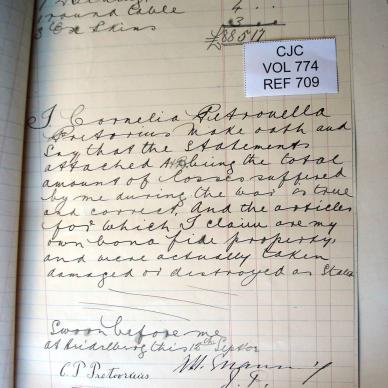 round Cable 4 " "
3 Ox Skins 3 " "
£88.5.17
CJC
VOL 774
REF 709
I Cornelia Petronella
Pretorius make oath and
say that the statements
attached A&B being the total
amount of losses suffered
by me during the war is true
and correct, and the articles
for which I claim are my
own bona fide property,
and were actually taken
damaged or destroyed as State
Sworn before me
at Heidelberg this 18th Septbr
C P Pretorius
J.P.